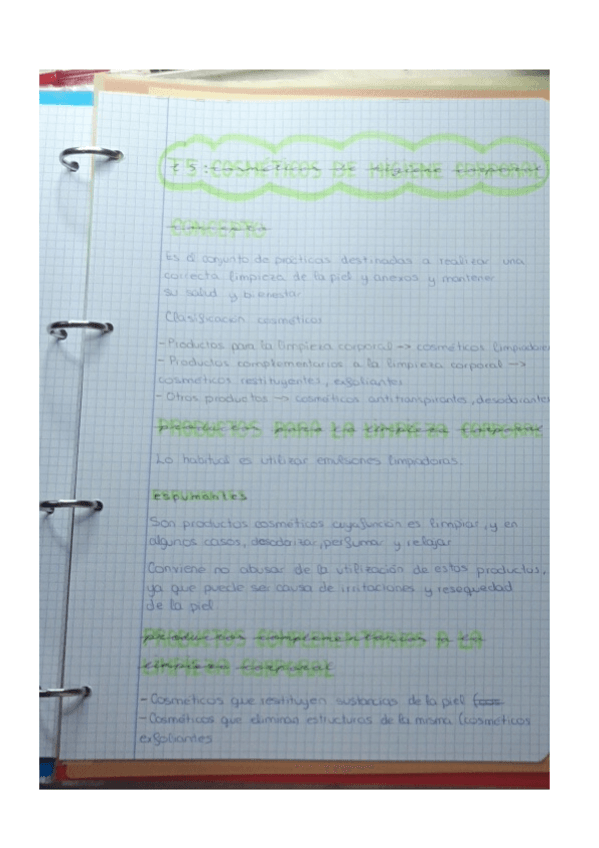 T.5: COSMÉTICOS DE HIGIENE CORPORAL
CONCEPTO
Es el conjunto de prácticas destinadas a realizar una
correcta limpieza de la piel y anexos y mantener
su salud y bienestar
Clasificación cosméticos
- Productos para la limpieza corporal -> cosméticos limpiadores
- Productos complementarios a la limpieza corporal ->
cosméticos restituyentes, exfoliantes
- Otros productos -> cosméticos antitranspirantes, desodorantes
PRODUCTOS PARA LA LIMPIEZA CORPORAL
Lo habitual es utilizar emulsiones limpiadoras.
Espumantes
Son productos cosméticos cuya función es limpiar, y en
algunos casos, desodorizar, perfumar y relajar
Conviene no abusar de la utilización de estos productos,
ya que puede ser causa de irritaciones y resequedad
de la piel
PRODUCTOS COMPLEMENTARIOS A LA
LIMPIEZA CORPORAL
- Cosméticos que restituyen sustancias de la piel
- Cosméticos que eliminan estructuras de la misma (cosméticos
exfoliantes